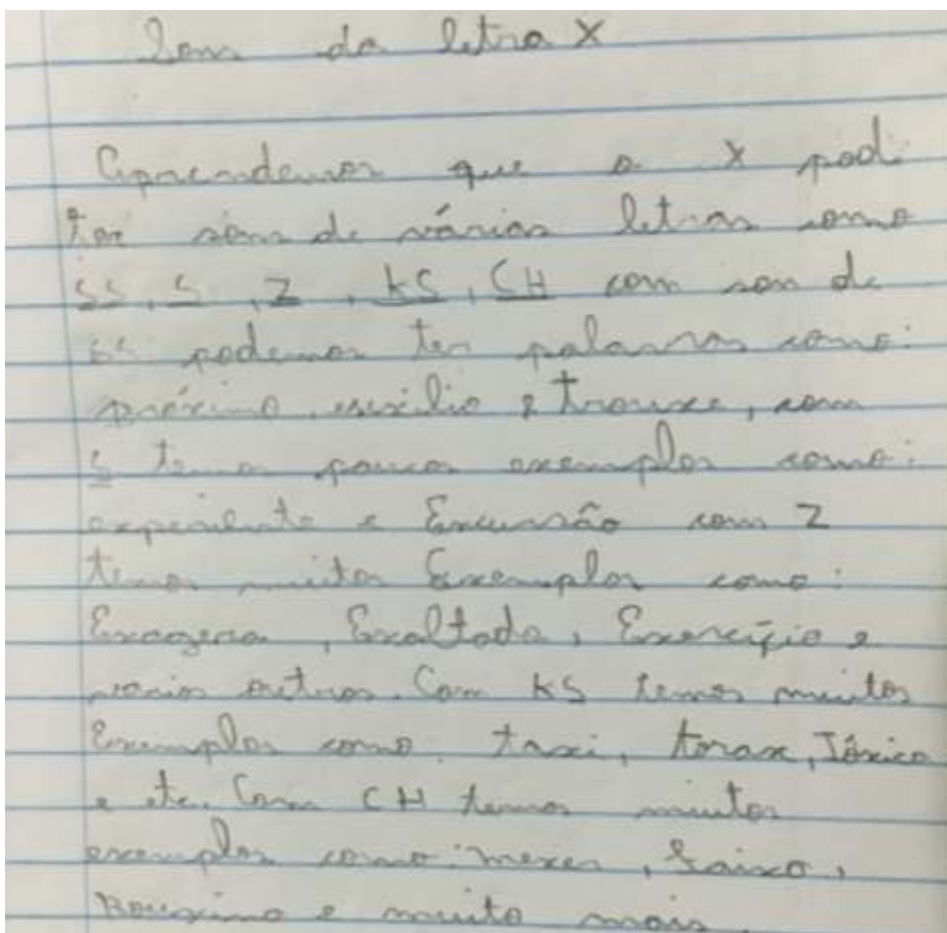 Som da letra X
Aprendemos que o X pode
ter sons de várias letras como
SS, S, Z, KS, CH com son de
ss podemos ter palavras como:
próximo, auxilio e trouxe, com
S temos poucos exemplos como:
experiente e Excursão com Z
temos muitos Exemplos como:
Exagero, Exaltado, Exercíçio e
vários outros. Com KS temos muitos
Exemplos como: taxi, torax, Tóxico
e etc. Com CH temos muitos
exemplos como: mexer,
e muito mais.